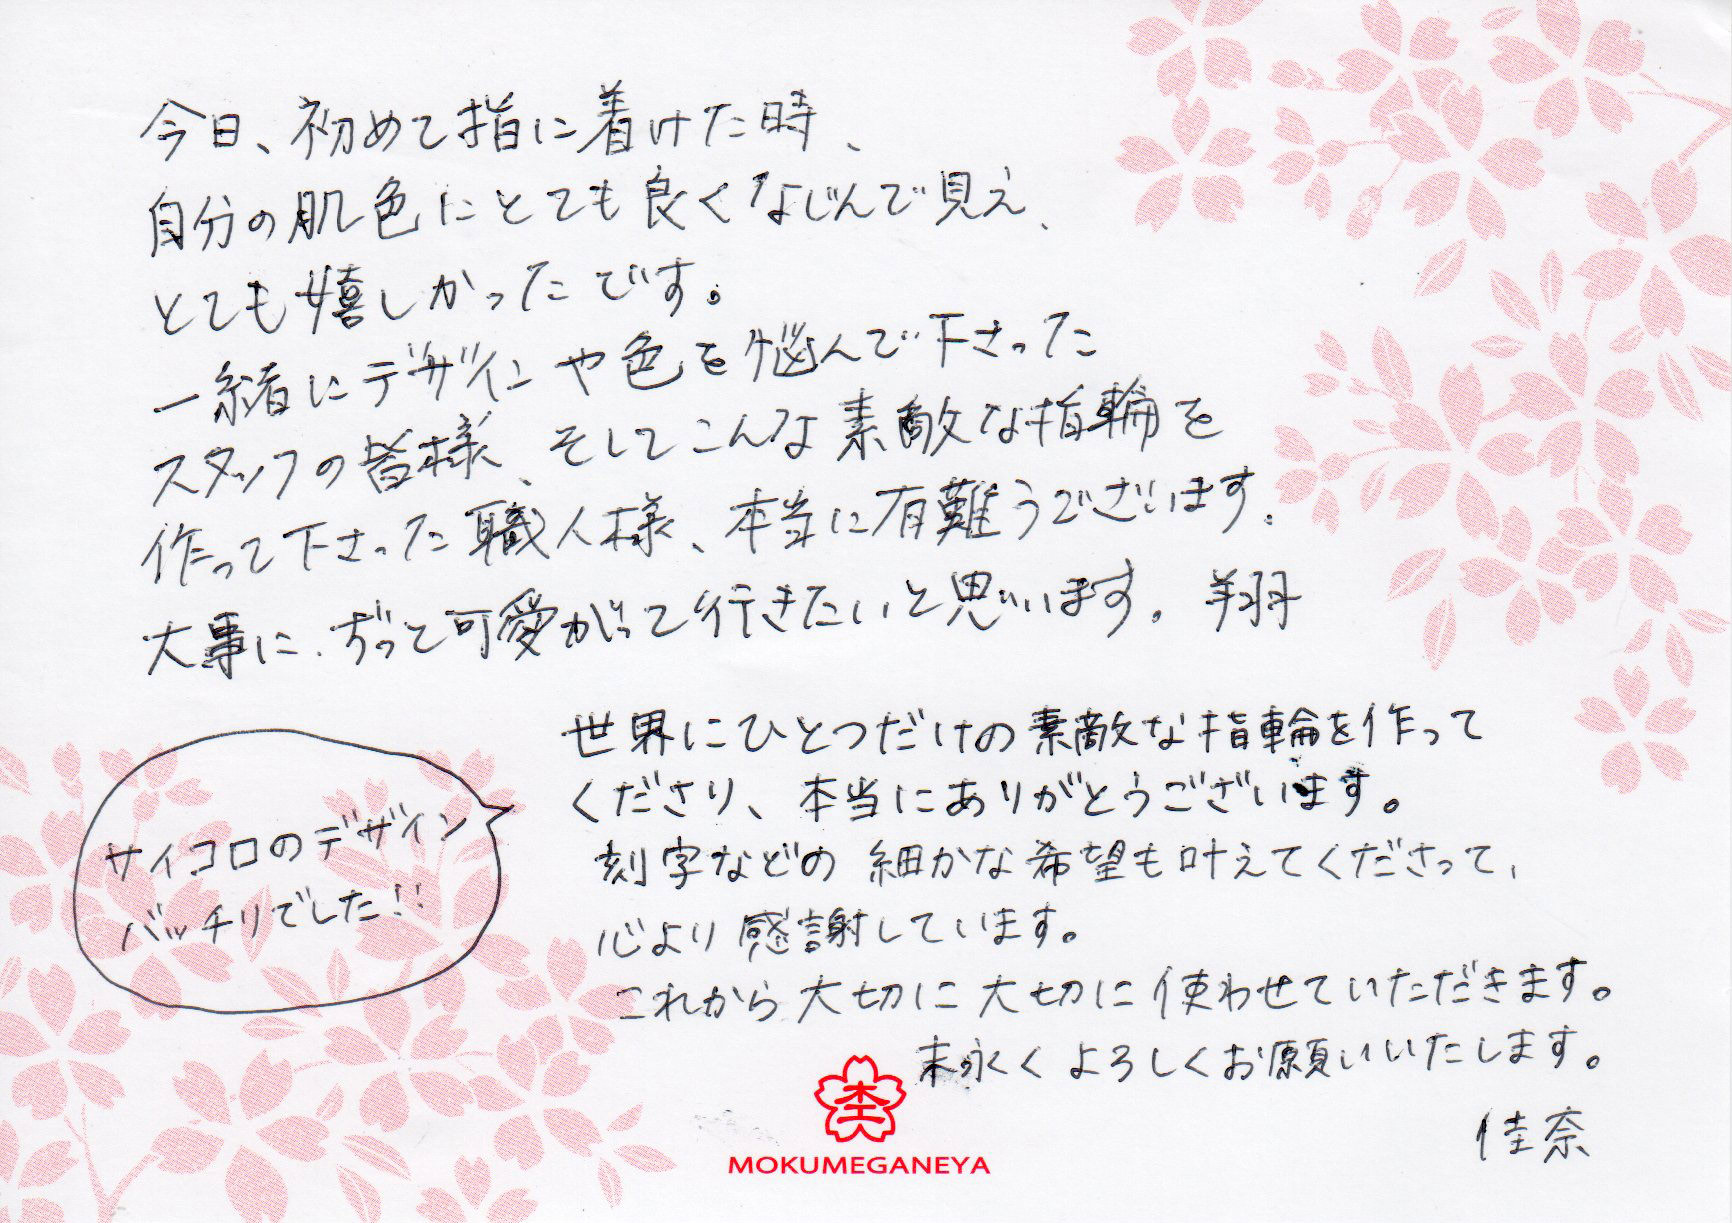 今日、初めて指に着けた時、
自分の肌色にとても良くなじんで見え、
とても嬉しかったです。
一緒にデザインや色を悩んで下さった
スタッフの皆様、そしてこんな素敵な指輪を
作って下さった職人様、本当に有難うございます。
大事に、ずっと可愛がって行きたいと思います。 翔
世界にひとつだけの素敵な指輪を作って
くださり、本当にありがとうございます。
刻字などの細かな希望も叶えてくださって、
心より感謝しています。
これから大切に大切に使わせていただきます。
末永くよろしくお願いいたします。
佳奈
サイコロのデザイン
バッチリでした!!
杢
MOKUMEGANEYA